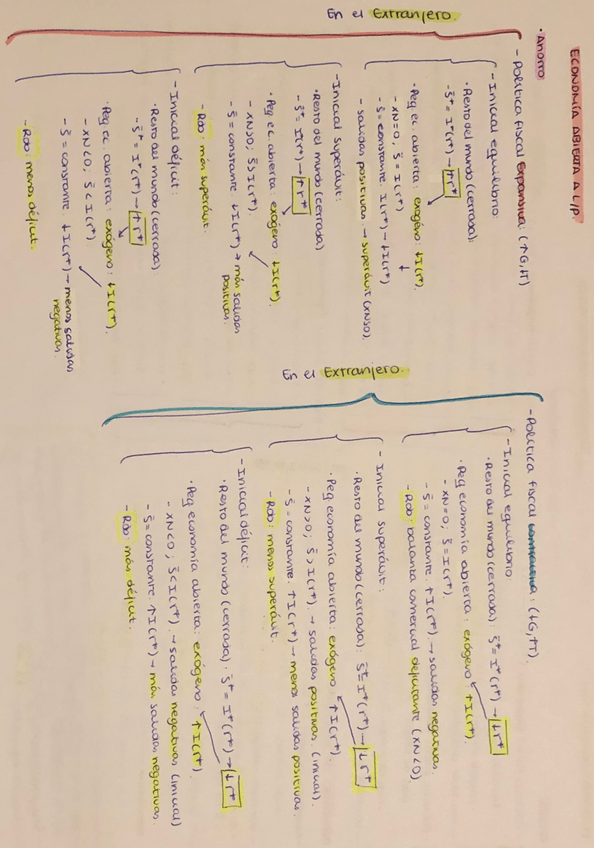 ECONOMÍA ABIERTA A L/P
· Ahorro
- Política fiscal expansiva: (↑G, ↓T)
En el Extranjero.
- Inicial equilibrio:
· Resto del mundo (cerrada):
- S̄* = I*(r*) → ↑r*
· Peq ec. abierta: exógeno: ↓I(r*).
- XN=0; S̄ = I(r*)
- S̄ = constante. I(r*) → ↓I(r*)
- salidas positivas. → superávit (XN>0)
- Inicial superávit:
· Resto del mundo (cerrada)
- S̄* = I*(r*) → ↑r*
· Peq ec abierta: exógeno ↓I(r*).
- XN>0; S̄ > I(r*)
- S̄ = constante ↓I(r*) → más salidas positivas.
- Rdo: más superávit.
- Inicial déficit:
· Resto del mundo (cerrada)
- S̄* = I*(r*) → ↑r*
· Peq ec. abierta: exógeno: ↓I(r*).
- XN<0; S̄ < I(r*)
- S̄ = constante ↓I(r*) → menos salidas negativas.
- Rdo: menos déficit.
- Política fiscal contractiva: (↓G, ↑T).
En el Extranjero.
- Inicial equilibrio
· Resto del mundo (cerrada): S̄* = I*(r*) → ↓r*
· Peq economía abierta: exógeno ↑I(r*).
- XN=0; S̄ = I(r*).
- S̄ = constante. ↑I(r*) → salidas negativas.
- Rdo: balanza comercial deficitante (XN<0)
- Inicial superávit:
· Resto del mundo (cerrada): S̄* = I*(r*) → ↓r*
· Peq economía abierta: exógeno: ↑I(r*).
- XN>0; S̄ > I(r*). → salidas positivas. (inicial).
- S̄ = constante. ↑I(r*) → menos salidas positivas.
- Rdo: menos superávit.
- Inicial déficit:
· Resto del mundo (cerrada). S̄* = I*(r*) → ↓r*
· Peq economía abierta: exógeno: ↑I(r*).
- XN<0; S̄ < I(r*). → salidas negativas (inicial)
- S̄ = constante ↑I(r*) → más salidas negativas
- Rdo: más déficit.